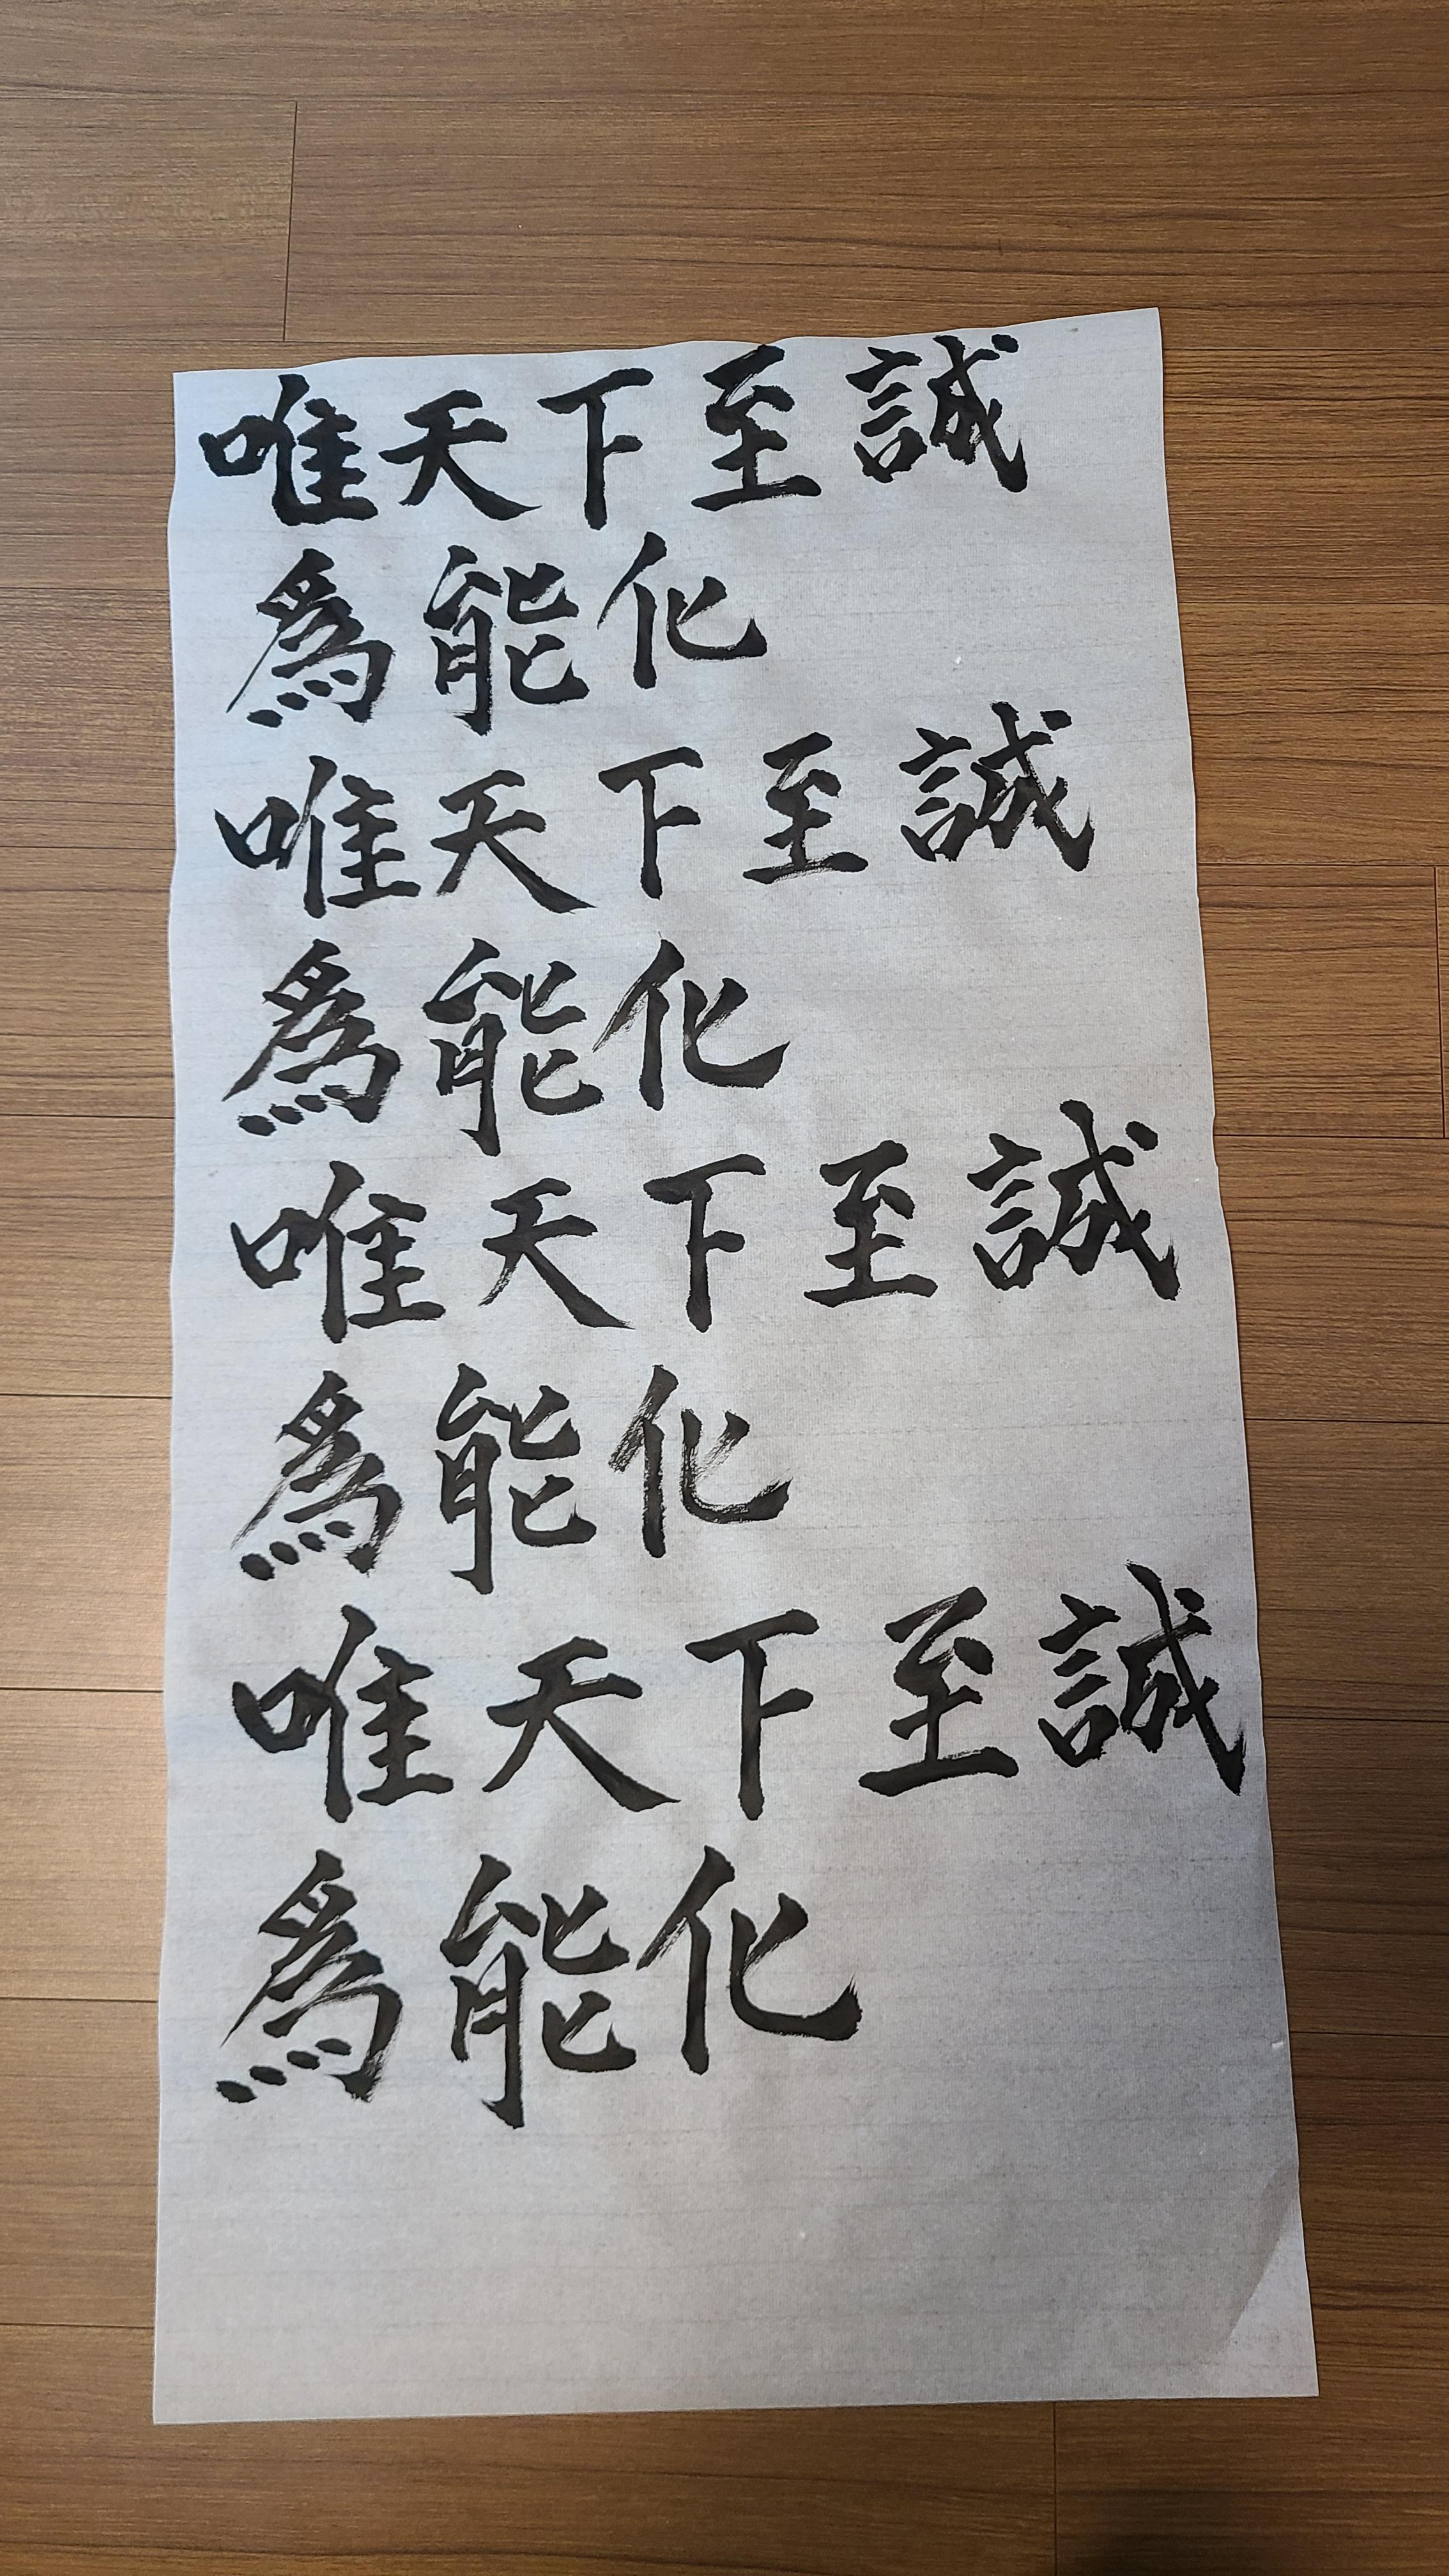 唯天下至誠
爲能化
唯天下至誠
爲能化
唯天下至誠
爲能化
唯天下至誠
爲能化